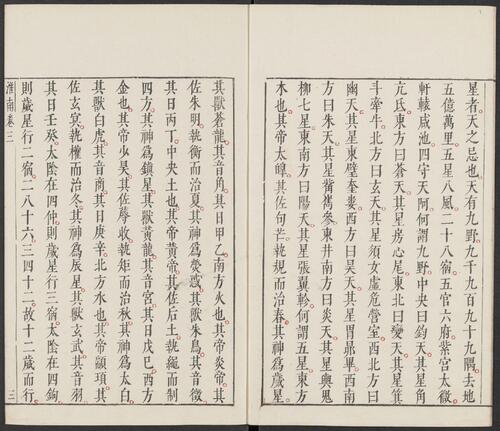 星者天之忌也天有九野九千九百九十九隅去地
五億萬里五星八風二十八宿五官六府紫宮太微
軒轅咸池四守天阿何謂九野中央曰鈞天其星角
亢氐東方曰蒼天其星房心尾東北曰變天其星箕
斗牽牛北方曰玄天其星須女虛危營室西北方曰
幽天其星東壁奎婁西方曰昊天其星胃昴畢西南
方曰朱天其星觜觿參東井南方曰炎天其星輿鬼
柳七星東南方曰陽天其星張翼軫何謂五星東方
木也其帝太皞其佐句芒執規而治春其神爲歲星
其獸蒼龍其音角其日甲乙南方火也其帝炎帝其
佐朱明執衡而治夏其神爲熒惑其獸朱鳥其音徵
其日丙丁中央土也其帝黃帝其佐后土執繩而制
四方其神爲鎮星其獸黃龍其音宮其日戊己西方
金也其帝少昊其佐蓐收執矩而治秋其神爲太白
其獸白虎其音商其日庚辛北方水也其帝顓頊其
佐玄冥執權而治冬其神爲辰星其獸玄武其音羽
其日壬癸太陰在四仲則歲星行三宿太陰在四鉤
則歲星行二宿二八十六三四十二故十二歲而行
淮南卷三
三